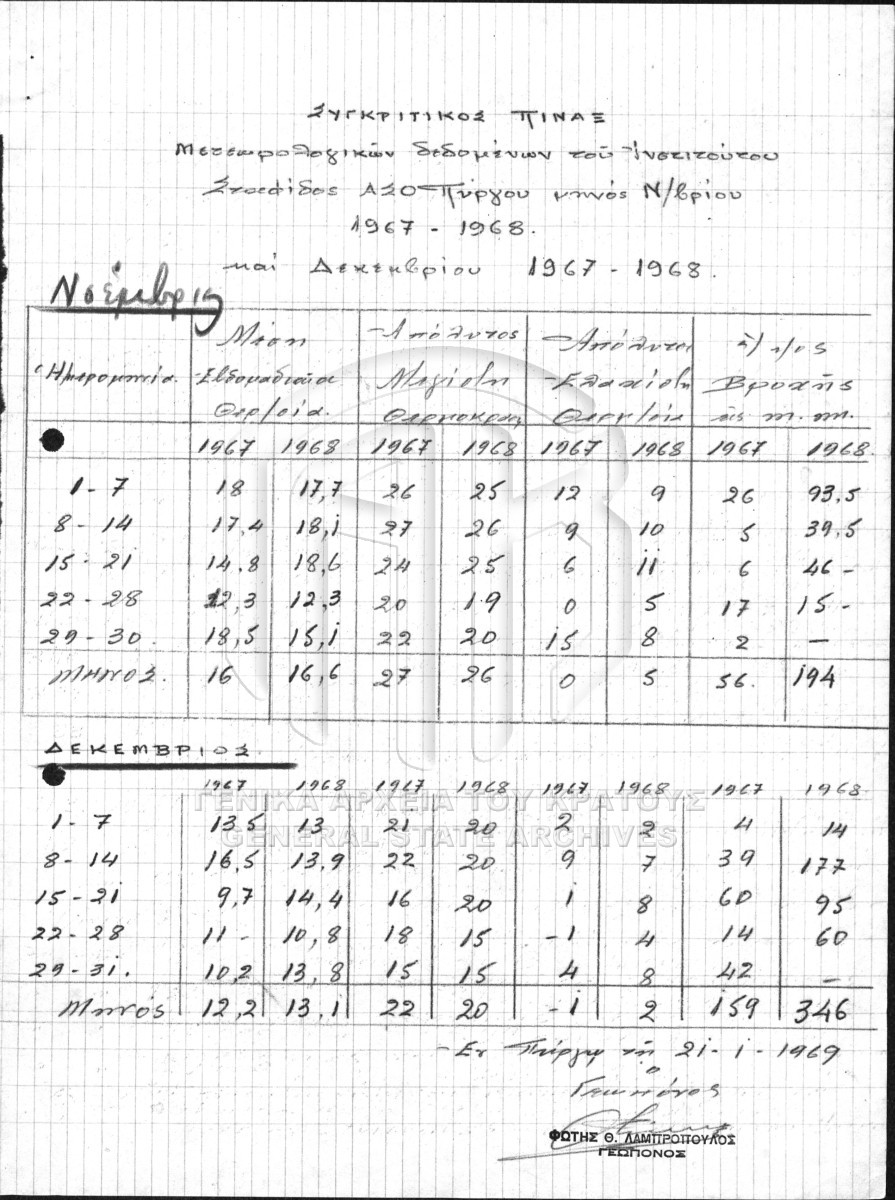 ΣΥΓΚΡΙΤΙΚΟΣ ΠΙΝΑΞ
Μετεωρολογικών δεδομένων τοῦ Ἰνστιτούτου
Σταφίδος ΑΣΟ Πύργου μηνός Ν/βρίου
1967 - 1968.
και Δεκεμβρίου 1967 - 1968.
Νοέμβρις
Ἡμερομηνία. Μέση Ἑβδομαδιαία Θερ/σία. Ἀπόλυτος Μεγίστη Θερμοκρασ Ἀπόλυτος Ἐλαχίστη Θερμ/σία ὕ/ψ/ος Βροχῆς εἰς m.m.
1967 1968 1967 1968 1967 1968 1967 1968.
1 - 7 18 17,7 26 25 12 9 26 93,5
8 - 14 17,4 18,1 27 26 9 10 5 39,5
15 - 21 14,8 18,6 24 25 6 11 6 46 -
22 - 28 12,3 12,3 20 19 0 5 17 15 -
29 - 30. 18,5 15,1 22 20 15 8 2 —
ΜΗΝΟΣ. 16 16,6 27 26 0 5 56. 194
ΔΕΚΕΜΒΡΙΟΣ.
1967 1968 1967 1968 1967 1968 1967 1968.
1 - 7 13,5 13 21 20 2 2 4 14
8 - 14 16,5 13,9 22 20 9 7 39 177
15 - 21 9,7 14,4 16 20 1 8 60 95
22 - 28 11 - 10,8 18 15 -1 4 14 60
29 - 31. 10,2 13,8 15 15 4 8 42 —
Μηνός 12,2 13,1 22 20 -1 2 159 346
ΓΕΝΙΚΑ ΑΡΧΕΙΑ ΤΟΥ ΚΡΑΤΟΥΣ
GENERAL STATE ARCHIVES
Ἐν Πύργῳ τῇ 21 - 1 - 1969
Ο
Γεωπόνος
ΦΩΤΗΣ Θ. ΛΑΜΠΡΟΠΟΥΛΟΣ
ΓΕΩΠΟΝΟΣ